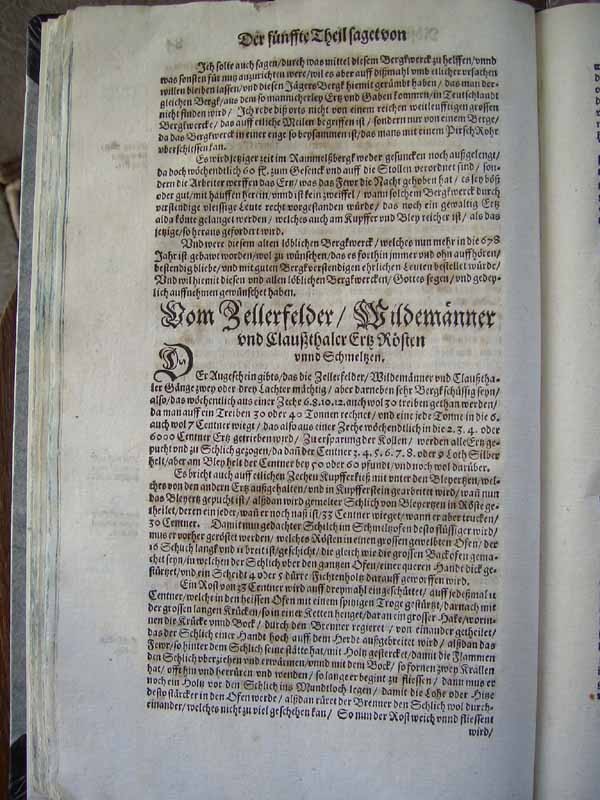 Der fünffte Theil saget von
Ich solte auch sagen/durch was mittel diesem Bergkwerck zu helffen/vnnd
was sonsten für nutz anzurichten were/wil es aber auff dißmahl vmb etlicher vrsachen
willen bleiben lassen/vnd diesen Jägers Bergk hiemit gerümbt haben/das man der-
gleichen Bergk/aus dem so mancherley Ertz vnd Gaben kommen/in Teutschlandt
nicht finden wird/ Ich rede diß orts nicht von einem reichen weitleufftigen grossen
Bergkwercke/das auff etliche Meilen begriffen ist/sondern nur von einem Berge/
da das Bergkwerck in einer enge so beysammen ist/das mans mit einem Pirsch Rohr
vberschiessen kan.
Es wird jetziger zeit im Rammelßbergk weder gesuncken noch außgelengt/
da doch wöchendtlich 60 fl. zum Gesenck vnd auff die Stollen verordnet sind/son-
dern die Arbeiter werffen das Ertz/was das Fewr die Nacht gehoben hat/es sey böß
oder gut/mit hauffen herein/vnnd ist kein zweiffel/wann solchem Bergkwerck durch
verstendige vleissige Leute recht vorgestanden würde/das noch ein gewaltig Ertz
alda könte gelanget werden/welches auch am Kupffer vnd Bley reicher ist/als das
jetzige/so heraus gefordert wird.
Vnd were diesem alten löblichen Bergkwerck/welches nun mehr in die 678
Jahr ist gebawt worden/wol zu wünschen/das es forthin jmmer vnd ohn auffhören/
bestendig bliebe/vnd mit guten Bergkverstendigen ehrlichen Leuten bestellet würde/
Vnd wil hiemit diesen vnd allen löblichen Bergkwercken/Gottes segen/vnd gedey-
lich auffnehmen gewünschet haben.
Vom Zellerfelder/Wildemänner
vnd Claußthaler Ertz Rösten
vnnd Schmeltzen.
DEr Augeschein gibts/das die Zellerfelder/Wildemänner vnd Claußtha-
ler Gänge zwey oder drey Lachter mächtig/aber darneben sehr Bergkschüssig seyn/
also/das wöchendtlich aus einer Zeche 6.8.10.12.auch wol 30 treiben gethan werden/
da man auff ein Treiben 30 oder 40 Tonnen rechnet/vnd eine jede Tonne in die 6.
auch wol 7 Centner wiegt/das also aus einer Zeche wöchendtlich in die 2.3.4.oder
6000 Centner Ertz getrieben wird/ Zu ersparung der Kollen/werden alle Ertz ge-
pucht vnd zu Schlich gezogen/da dañ der Centner 3.4.5.6.7.8.oder 9 Loth Silber
helt/aber am Bley helt der Centner bey 50 oder 60 pfundt/vnd noch wol darüber.
Es bricht auch auff etlichen Zechen Kupfferkieß mit vnter den Bleyertzen/wel-
ches von den andern Ertz außgehalten/vnd in Kupfferstein gearbeitet wird/wañ nun
das Bleyertz gepucht ist/alßdan wird gemelter Schlich von Bleyertzen in Röste ge-
theilet/deren ein jeder/wañ er noch naß ist/33 Centner wieget/wann er aber trucken/
30 Centner. Damit nun gedachter Schlich im Schmeltzofen desto flüssiger wird/
mus er vorher geröstet werden/welches Rösten in einen grossen gewelbten Ofen/der
16 Schuch langk vnd 11 breit ist/geschicht/die gleich wie die grossen Backöfen gema-
chet seyn/in welchen der Schlich vber den gantzen Ofen/einer queren Handt dick ge-
stürtzet/vnd ein Scheidt 4 oder 5 dürre Fichtenholtz darauff geworffen wird.
Ein Rost von 33 Centner wird auff dreymahl eingeschüttet/auff jedeßmal 11
Centner/welcht in den heissen Ofen mit einem spitzigen Troge gestürtzt/darnach mit
der grossen langen Krücken/so in einer Ketten henget/daran ein grosser Hake/worin-
nen die Krücke vnnd Bock/durch den Brenner regieret/von einander getheilet/
das der Schlich einer Handt hoch auff dem Herdt außgebreitet wird/alßdan das
Fewr/so hinter dem Schlich seine stätte hat/mit Holtz gestercket/damit die Flammen
den Schlich vberziehen vnd erwärmen/vnnd mit dem Bock/so fornen zwey Krallen
hat/offt hin vnd herrüren vnd wenden/so langer beginnt zu fliessen/dann mus er
noch ein Holtz vor den Schlich ins Mundtloch legen/damit die Lohe oder Hitze
desto stärcker in den Ofen werde/alßdan rüret der Brenner den Schlich wol durch-
einander/welches nicht zu viel geschehen kan/ So nun der Rost weich vnnd fliessent
wird/